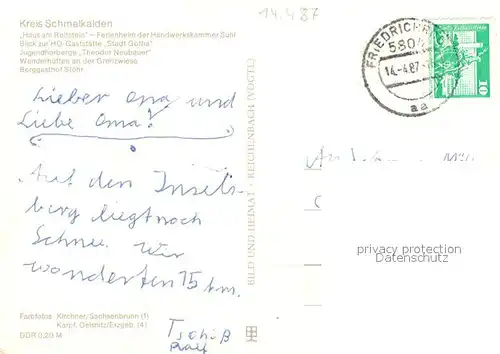 14.4.87
Kreis Schmalkalden
„Haus am Reitstein" – Ferienheim der Handwerkskammer Suhl
Blick zur HO-Gaststätte „Stadt Gotha"
Jugendherberge „Theodor Neubauer"
Wanderhütten an der Grenzwiese
Berggasthof Stöhr
FRIEDRICHR
5804
14.-4.87-
aa
10
Lieber Opa und
Liebe Oma!
Auf den Insels-
berg liegt noch
Schnee. Wir
wanderten 15 km.
Tschüß
Ralf
BILD UND HEIMAT · REICHENBACH (VOGTL)
privacy protection
Datenschutz
Farbfotos: Kirchner, Sachsenbrunn (1)
Karpf, Oelsnitz/Erzgeb. (4)
DDR 0,20 M